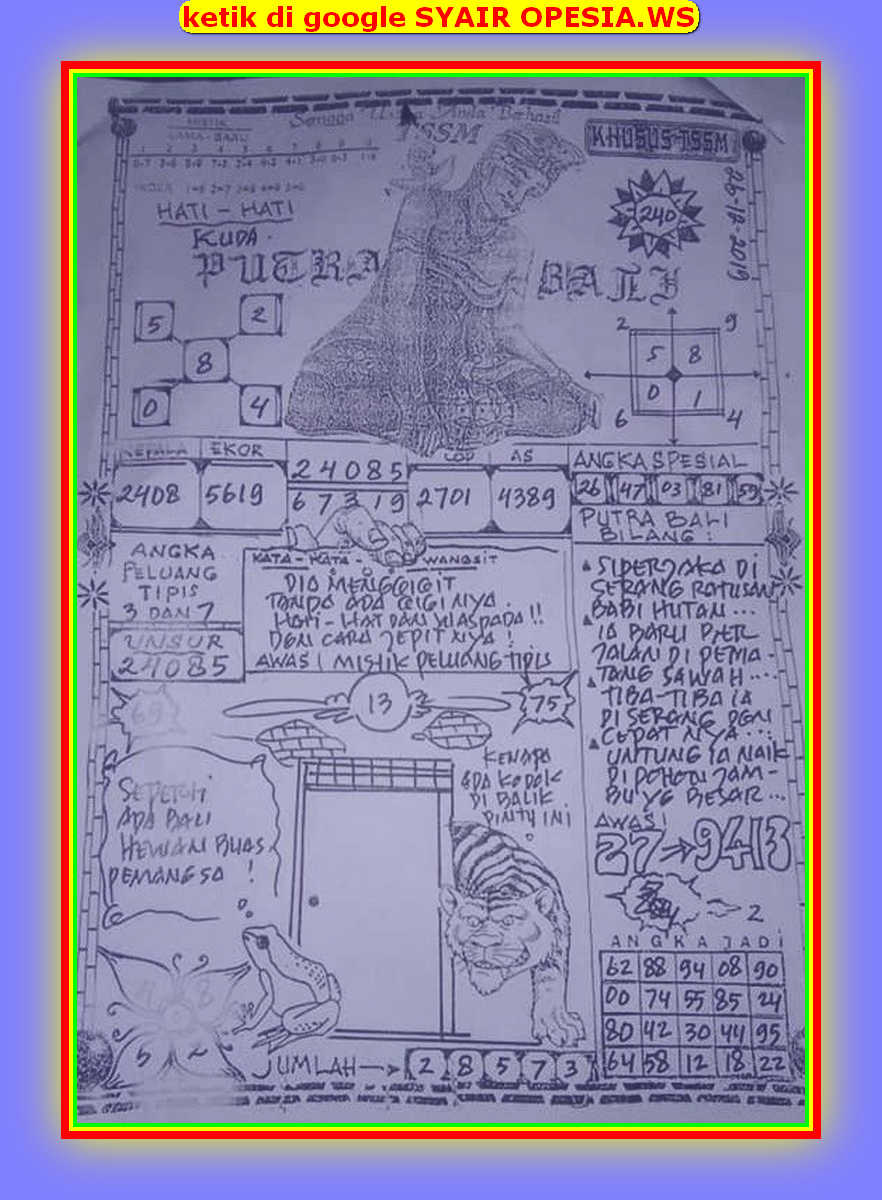 ketik di google SYAIR OPESIA.WS
Semoga Anda Berhasil
TSSM
MISTIK
LAMA - BARU
KHUSUS TSSM
26-12-2019
240
HATI - HATI
KUDA
PUTRA BALI
5 2
8
0 4
2 9
5 8
0 1
6 4
KEPALA
EKOR
24085
67319
COP
AS
2408
5619
2701
4389
ANGKA SPESIAL
26 47 03 81 59
PUTRA BALI
BILANG :
ANGKA
PELUANG
TIPIS
3 DAN 7
UNSUR
24085
KATA - KATA - WANGSIT
DIA MENGGIGIT
TANPA ADA GIGI NYA.
HATI - HAT DAN WASPADA !!
DGN CARA JEPIT NYA !
AWAS ! MISTIK PELUANG TIPIS
SIPERJAKA DI
SERANG RATUSAN
BABI HUTAN ...
IA BARU BER
JALAN DI PEMA -
TANG SAWAH ....
TIBA-TIBA IA
DI SERANG DGN
CEPAT NYA ...
UNTUNG IA NAIK
DI POHON JAM-
BU YG BESAR ...
AWAS !
27 → 9413
2
69
13
75
SEPERTI
ADA BALI
HEWAN BUAS
PEMANGSA !
KENAPA
ADA KODOK
DI BALIK
PINTU INI
?
4 8
5 2
JUMLAH → 2 8 5 7 3
ANGKA JADI
62 88 94 08 90
00 74 55 85 24
80 42 30 44 95
64 58 12 18 22